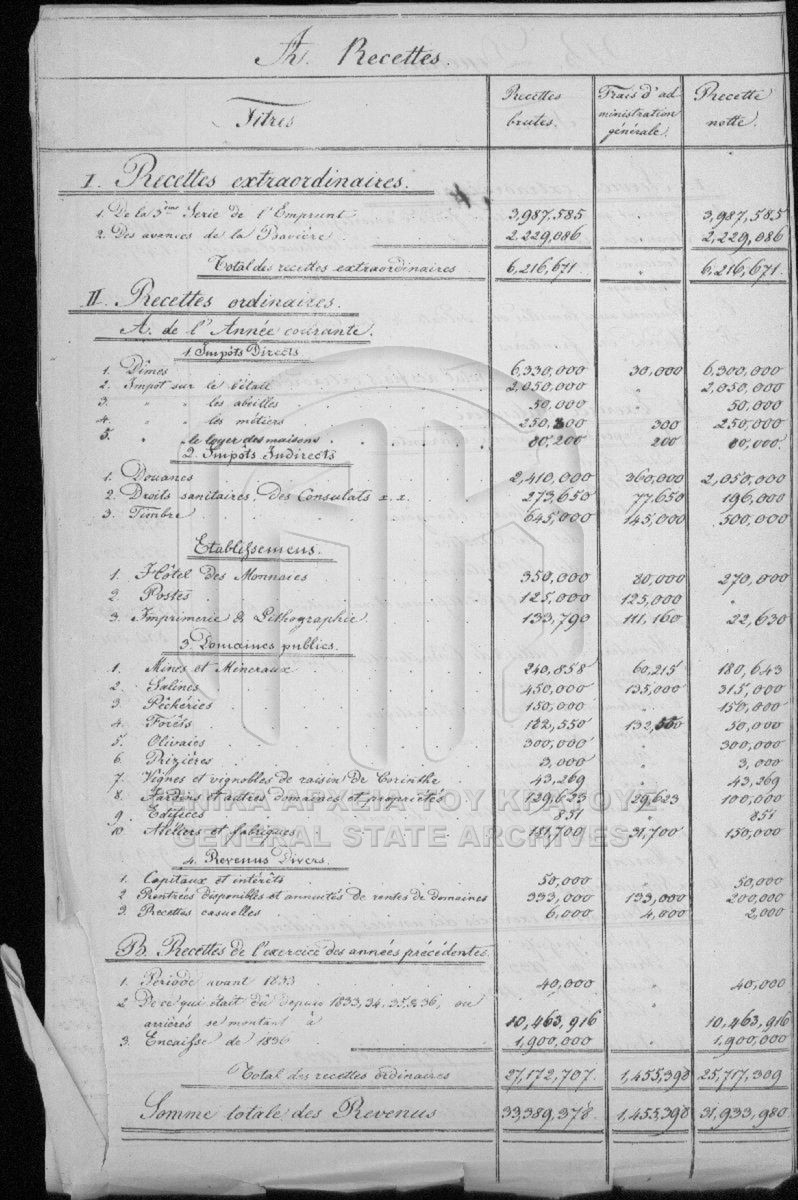 A. Recettes.
Titres Recettes brutes. Frais d'administration générale. Recette nette.
I. Recettes extraordinaires.
1. De la 3ème Serie de l'Emprunt 3,987,585 " 3,987,585
2. Des avances de la Bavière 2,229,086 " 2,229,086
Total des recettes extraordinaires 6,216,671. " 6,216,671.
II. Recettes ordinaires.
A. de l'Année courante.
1. Impôts Directs
1. Dîmes 6,330,000 30,000 6,300,000
2. Impôt sur le bétail 2,050,000 " 2,050,000
3. " " les abeilles 50,000 50,000
4. " " les métiers 250,300 300 250,000
5. " le loyer des maisons 80,200 200 80,000.
2. Impôts Indirects
1. Douanes 2,410,000 360,000 2,050,000
2. Droits sanitaires, des Consulats x.x. 273,650 77,650 196,000
3. Timbre 645,000 145,000 500,000
Etablissemens.
1. Hôtel des Monnaies 350,000 80,000 270,000
2. Postes 125,000 125,000 "
3. Imprimerie & Lithographie 133,790 111,160 22,630
3. Domaines publics.
1. Mines et Minéraux 240,858 60,215 180,643
2. Salines 450,000 135,000 315,000
3. Pêcheries 150,000 " 150,000
4. Forêts 182,550 132,550 50,000
5. Olivaies 300,000 " 300,000
6. Prizières 3,000 " 3,000
7. Vignes et vignobles de raisin de Corinthe 43,269 " 43,269
8. Jardins et autres domaines et propriétés 129,623 29,623 100,000
9. Edifices 851 " 851
10. Atéliers et fabriques 181,700 31,700 150,000
4. Revenus Divers.
1. Capitaux et intérêts 50,000 " 50,000
2 Rentrées disponibles et annuités de rentes de domaines 333,000 133,000 200,000
3. Recettes casuelles 6,000 4,000 2,000
B. Recettes de l'exercice des années précédentes.
1. Période avant 1833 40,000 " 40,000
2 De ce qui était dû depuis 1833, 34, 35 & 36, ou
arriérés se montant à 10,463,916 " 10,463,916
3. Encaisse de 1836 1,900,000 " 1,900,000
Total des recettes ordinaires 27,172,707. 1,455,398 25,717,309
Somme totale des Revenus 33,389,378. 1,455,398 31,933,980
ΓΕΝΙΚΑ ΑΡΧΕΙΑ ΤΟΥ ΚΡΑΤΟΥΣ
GENERAL STATE ARCHIVES